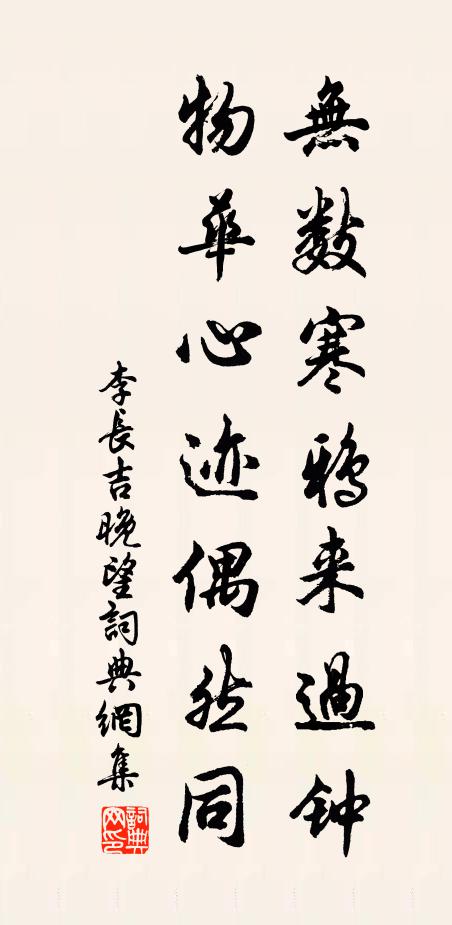 無数寒鸦来過钟
物華心迹偶然同
李長吉晚望詞典網集
詞典網印